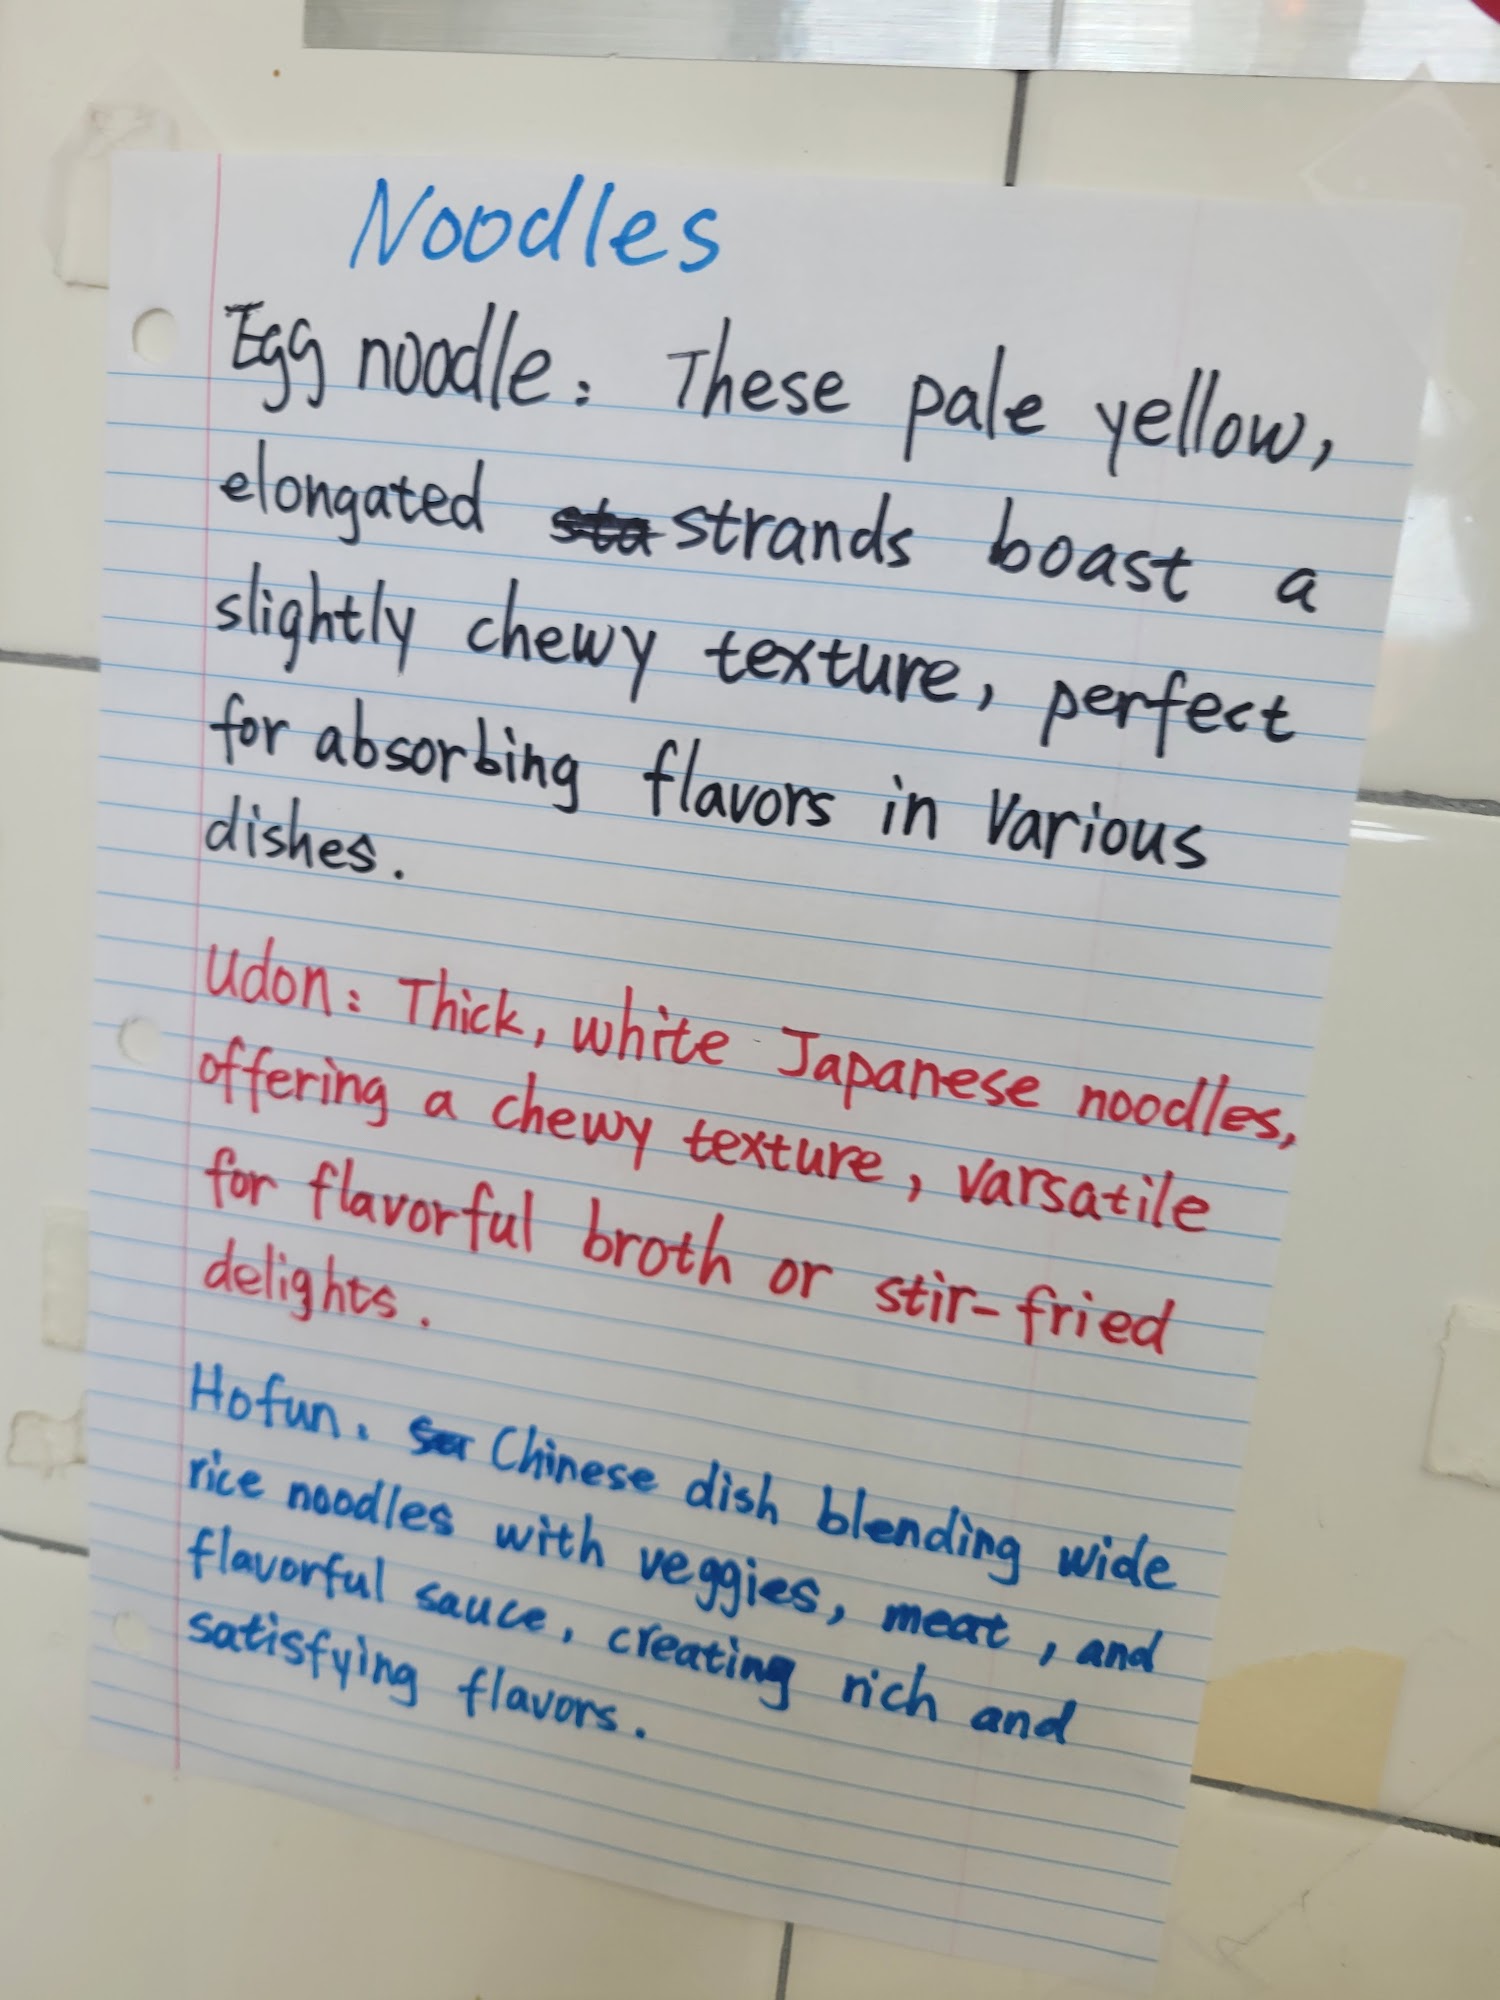 Noodles
Egg noodle: These pale yellow,
elongated strands boast a
slightly chewy texture, perfect
for absorbing flavors in various
dishes.
Udon: Thick, white Japanese noodles,
offering a chewy texture, varsatile
for flavorful broth or stir-fried
delights.
Hofun: Chinese dish blending wide
rice noodles with veggies, meat, and
flavorful sauce, creating rich and
satisfying flavors.